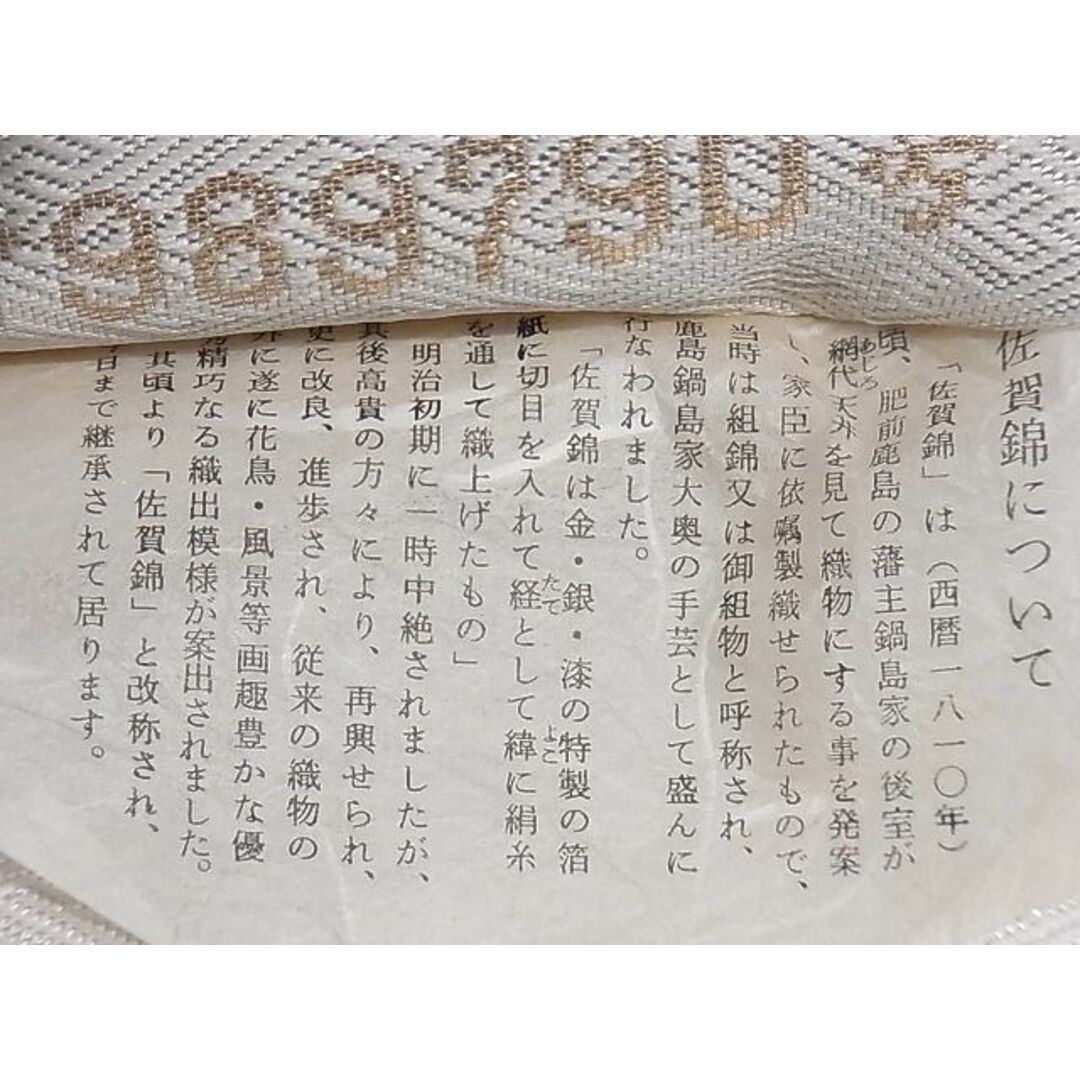 989790号
佐賀錦について
「佐賀錦」は(西暦一八一〇年)
頃、肥前鹿島の藩主鍋島家の後室が
網代天井を見て織物にする事を発案
あじろ
し、家臣に依嘱製織せられたもので、
当時は組錦又は御組物と呼称され、
鹿島鍋島家大奥の手芸として盛んに
行なわれました。
「佐賀錦は金・銀・漆の特製の箔
紙に切目を入れて経として緯に絹糸
たて
よこ
を通して織上げたもの」
明治初期に一時中絶されましたが、
其後高貴の方々により、再興せられ、
更に改良、進歩され、従来の織物の
外に遂に花鳥・風景等画趣豊かな優
精巧なる織出模様が案出されました。
其頃より「佐賀錦」と改称され、
日まで継承されて居ります。